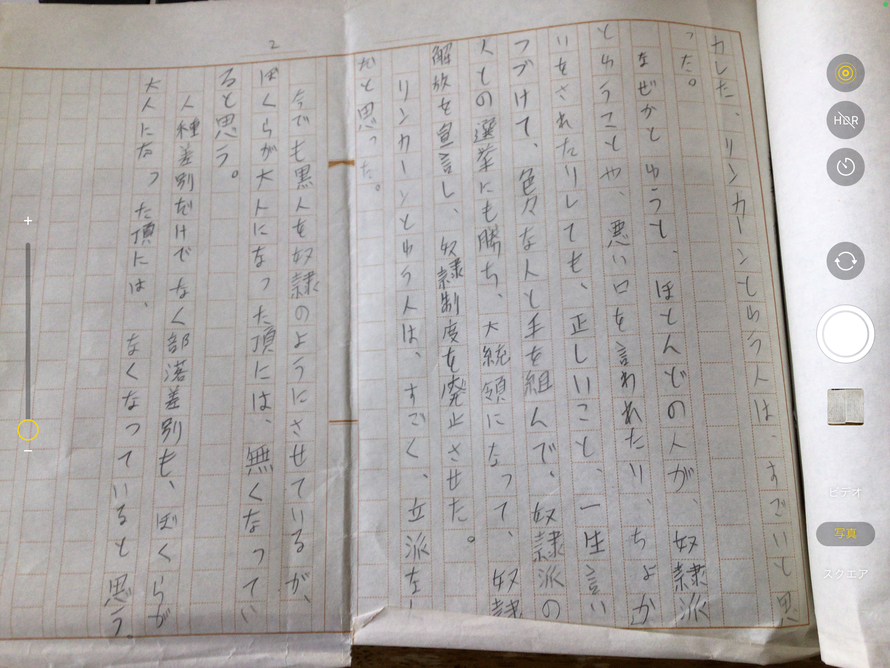 カした、リンカーンとゆう人は、すごいと思
った。
なぜかとゆうと、ほとんどの人が、奴隷派
とゆうことや、悪い口を言われたり、ちょか
いをされたりしても、正しいこと、一生言い
つづけて、色々な人と手を組んで、奴隷派の
人との選挙にも勝ち、大統領になって、奴隷
解放を宣言し、奴隷制度を廃止させた。
リンカーンとゆう人は、すごく、立派な
だと思った。
2
今でも黒人を奴隷のようにさせているが、
ぼくらが大人になった頂には、無くなってい
ると思う。
人種差別だけでなく部落差別も、ぼくらが
大人になった頂には、なくなっていると思う。
HDR
ビデオ
写真
スクエア